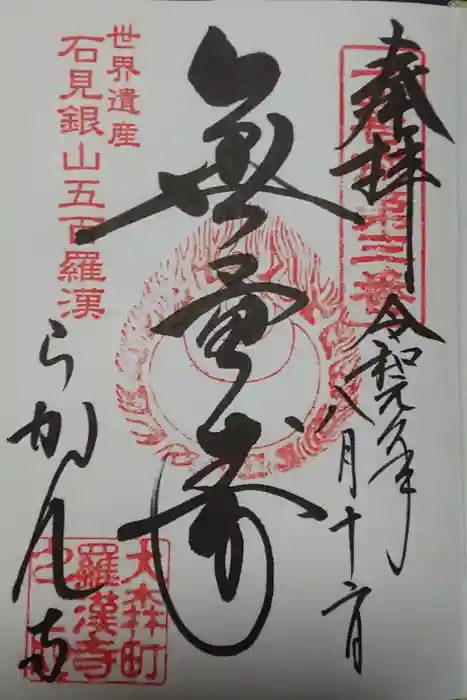 奉拝
令和元年
八月十六日
無量寿
世界遺産
石見銀山五百羅漢
らかん寺
大森町
羅漢寺